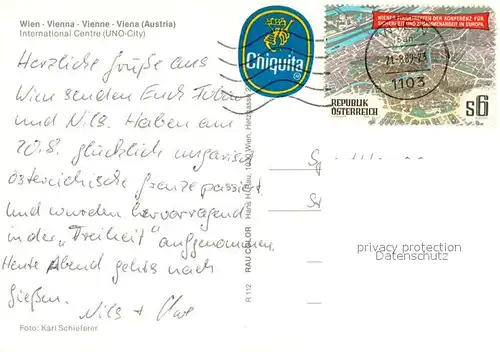 Wien - Vienna - Vienne - Viena (Austria)
International Centre (UNO-City)
Herzliche Grüße aus
Wien senden Euch
und Nils. Haben am
20.8. glücklich ungarisch
österreichische Grenze passiert
und wurden hervorragend
in der „Freiheit" aufgenommen.
Heute Abend gehts nach
Gießen.
Nils +
Foto: Karl Schieferer
R 112 RAU COLOR Hans H. Rau, Wien,
Chiquita
WIENER FOLGETREFFEN DER KONFERENZ FÜR
SICHERHEIT UND ZUSAMMENARBEIT IN EUROPA
1103
REPUBLIK
ÖSTERREICH
S6
privacy protection
Datenschutz